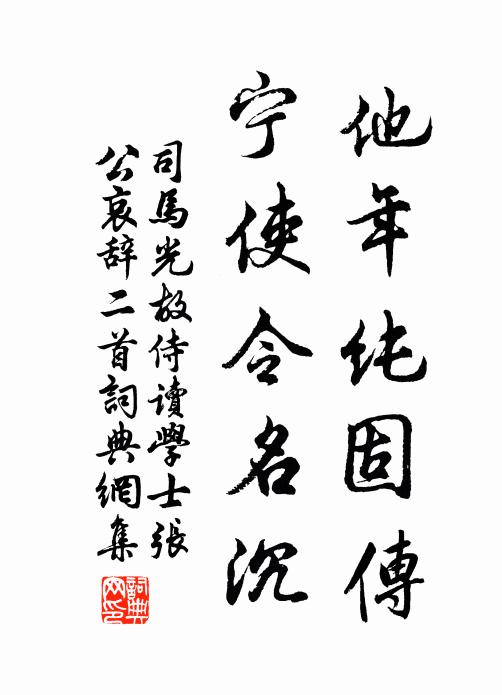 他年纯固傳
宁使令名沉
司馬光故侍讀學士張
公哀辞二首詞典網集